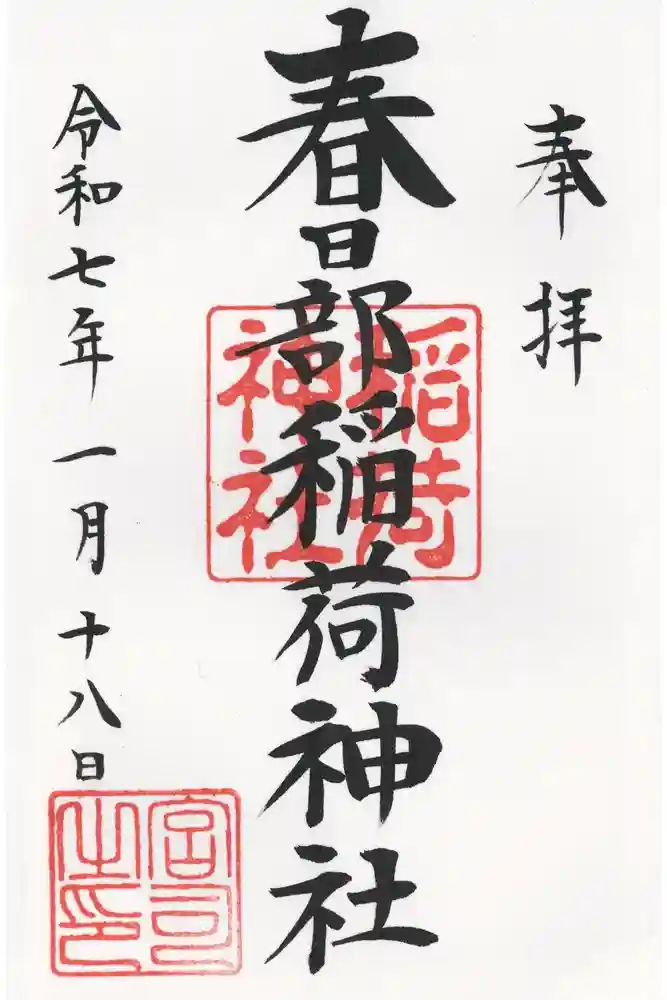 奉拝
春日部稲荷神社
稲荷神社
令和七年一月十八日
宮司之印